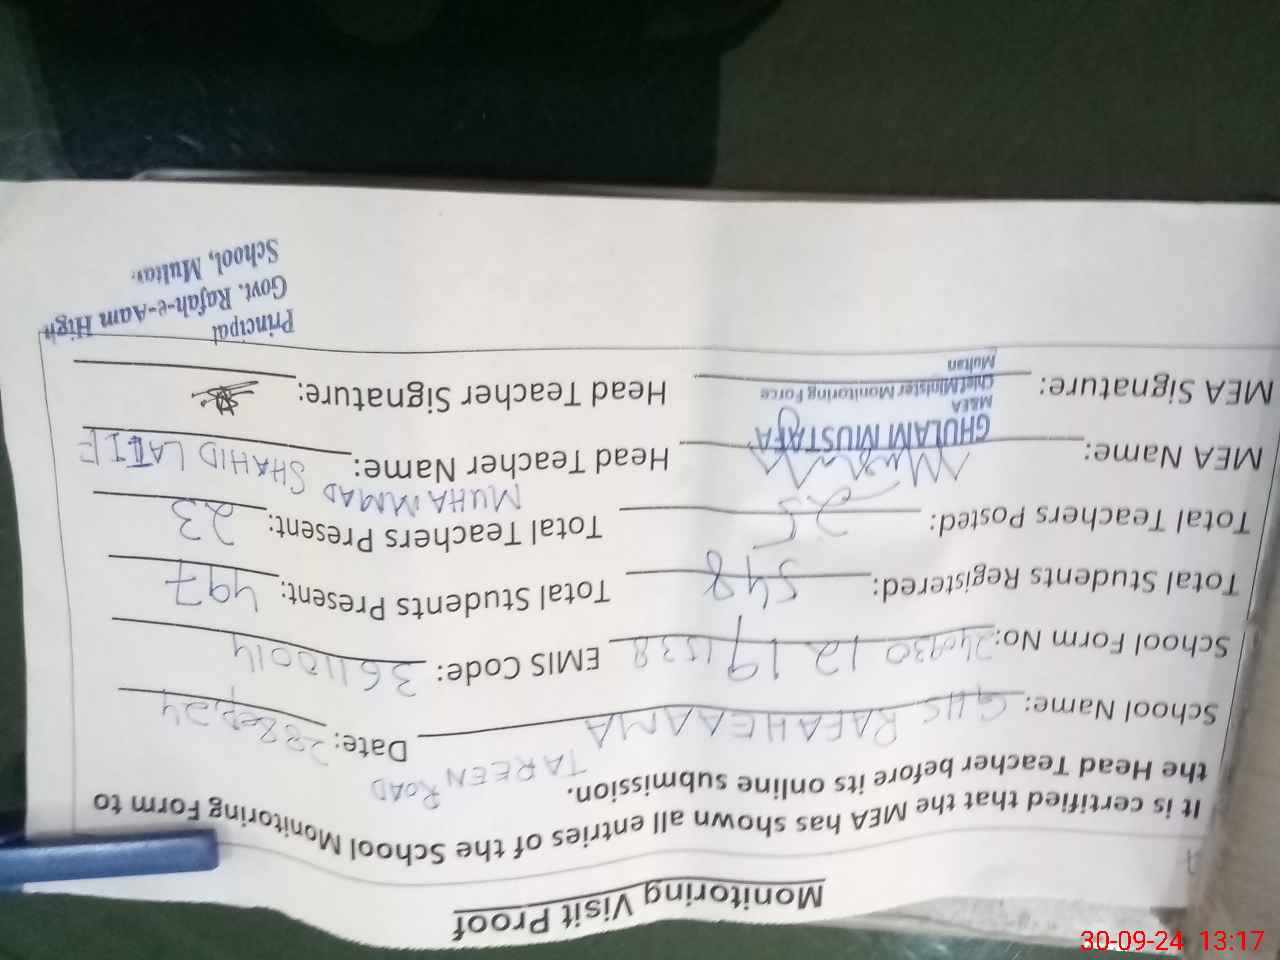 Monitoring Visit Proof
It is certified that the MEA has shown all entries of the School Monitoring Form to
the Head Teacher before its online submission.
TAREEN ROAD
School Name: GHS RAFAHEAAMA Date: 28 Sep, 24
School Form No: 240930 12 191538 EMIS Code: 36110014
Total Students Registered: 548 Total Students Present: 497
Total Teachers Posted: 25 Total Teachers Present: 23
MEA Name: GHULAM MUSTAFA Head Teacher Name: MUHAMMAD SHAHID LATIF
M&EA
Chief Minister Monitoring Force
Multan
MEA Signature: Head Teacher Signature:
Principal
Govt. Rafah-e-Aam High
School, Multan.
30-09-24 13:17